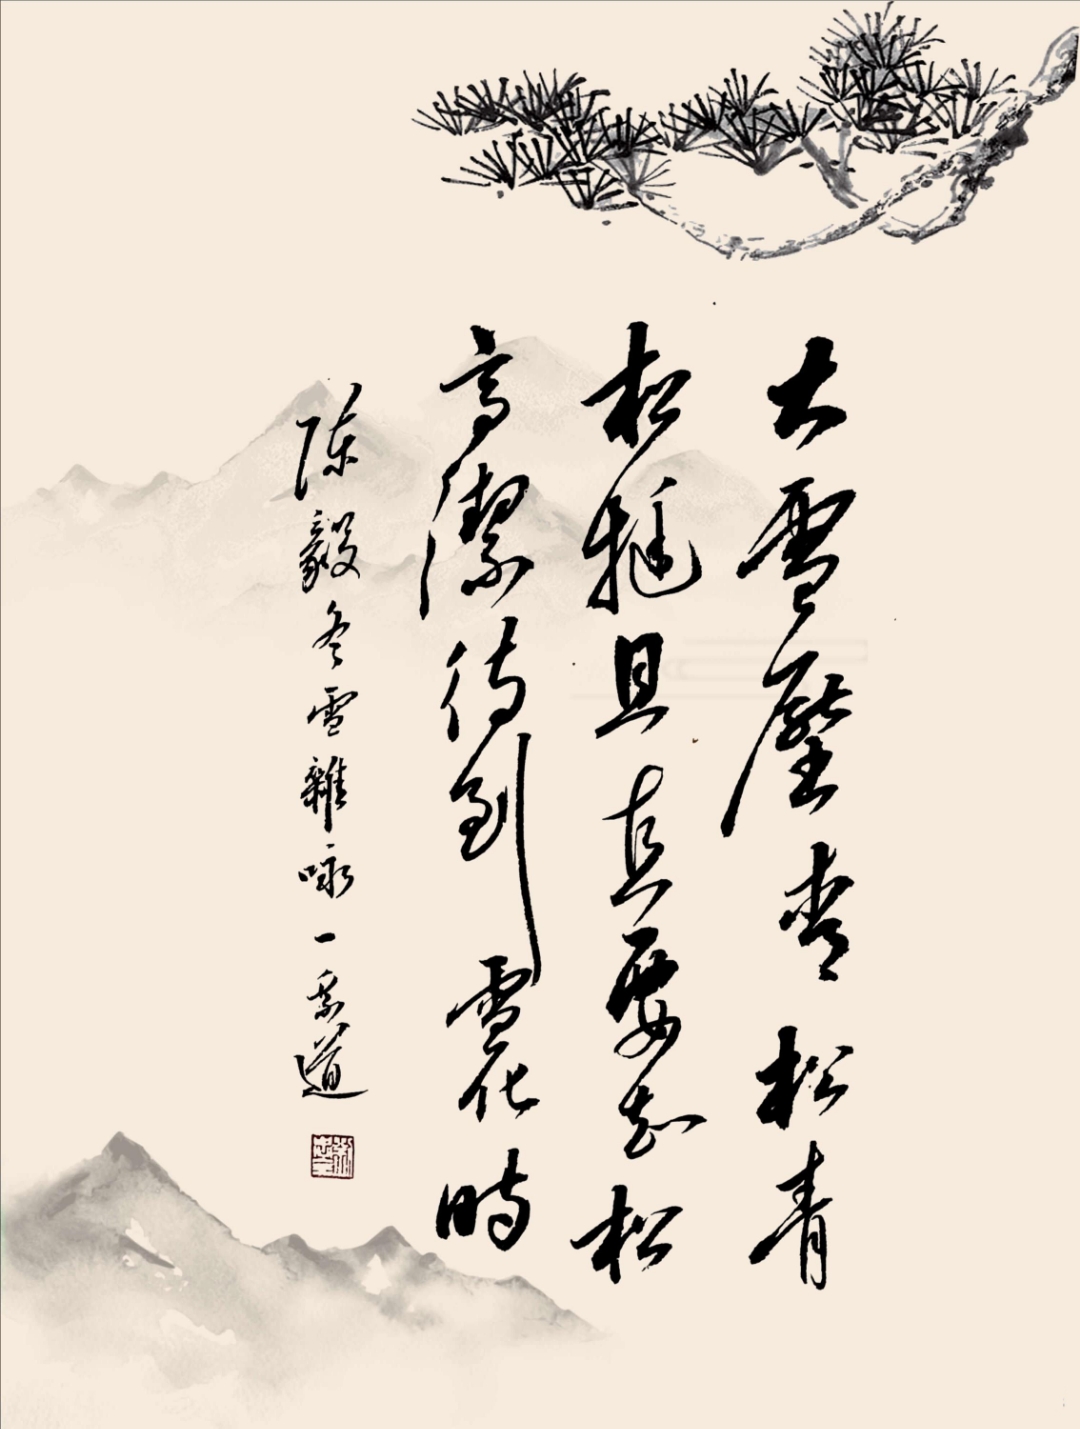 大雪壓青松青
松挺且直要知松
高潔待到雪化時
陈毅冬雪雜咏一道